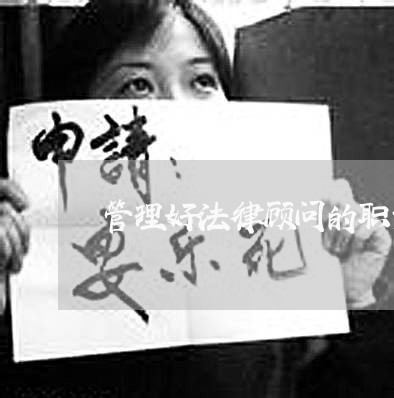 申請：
管理好法律顾问的职
安乐死